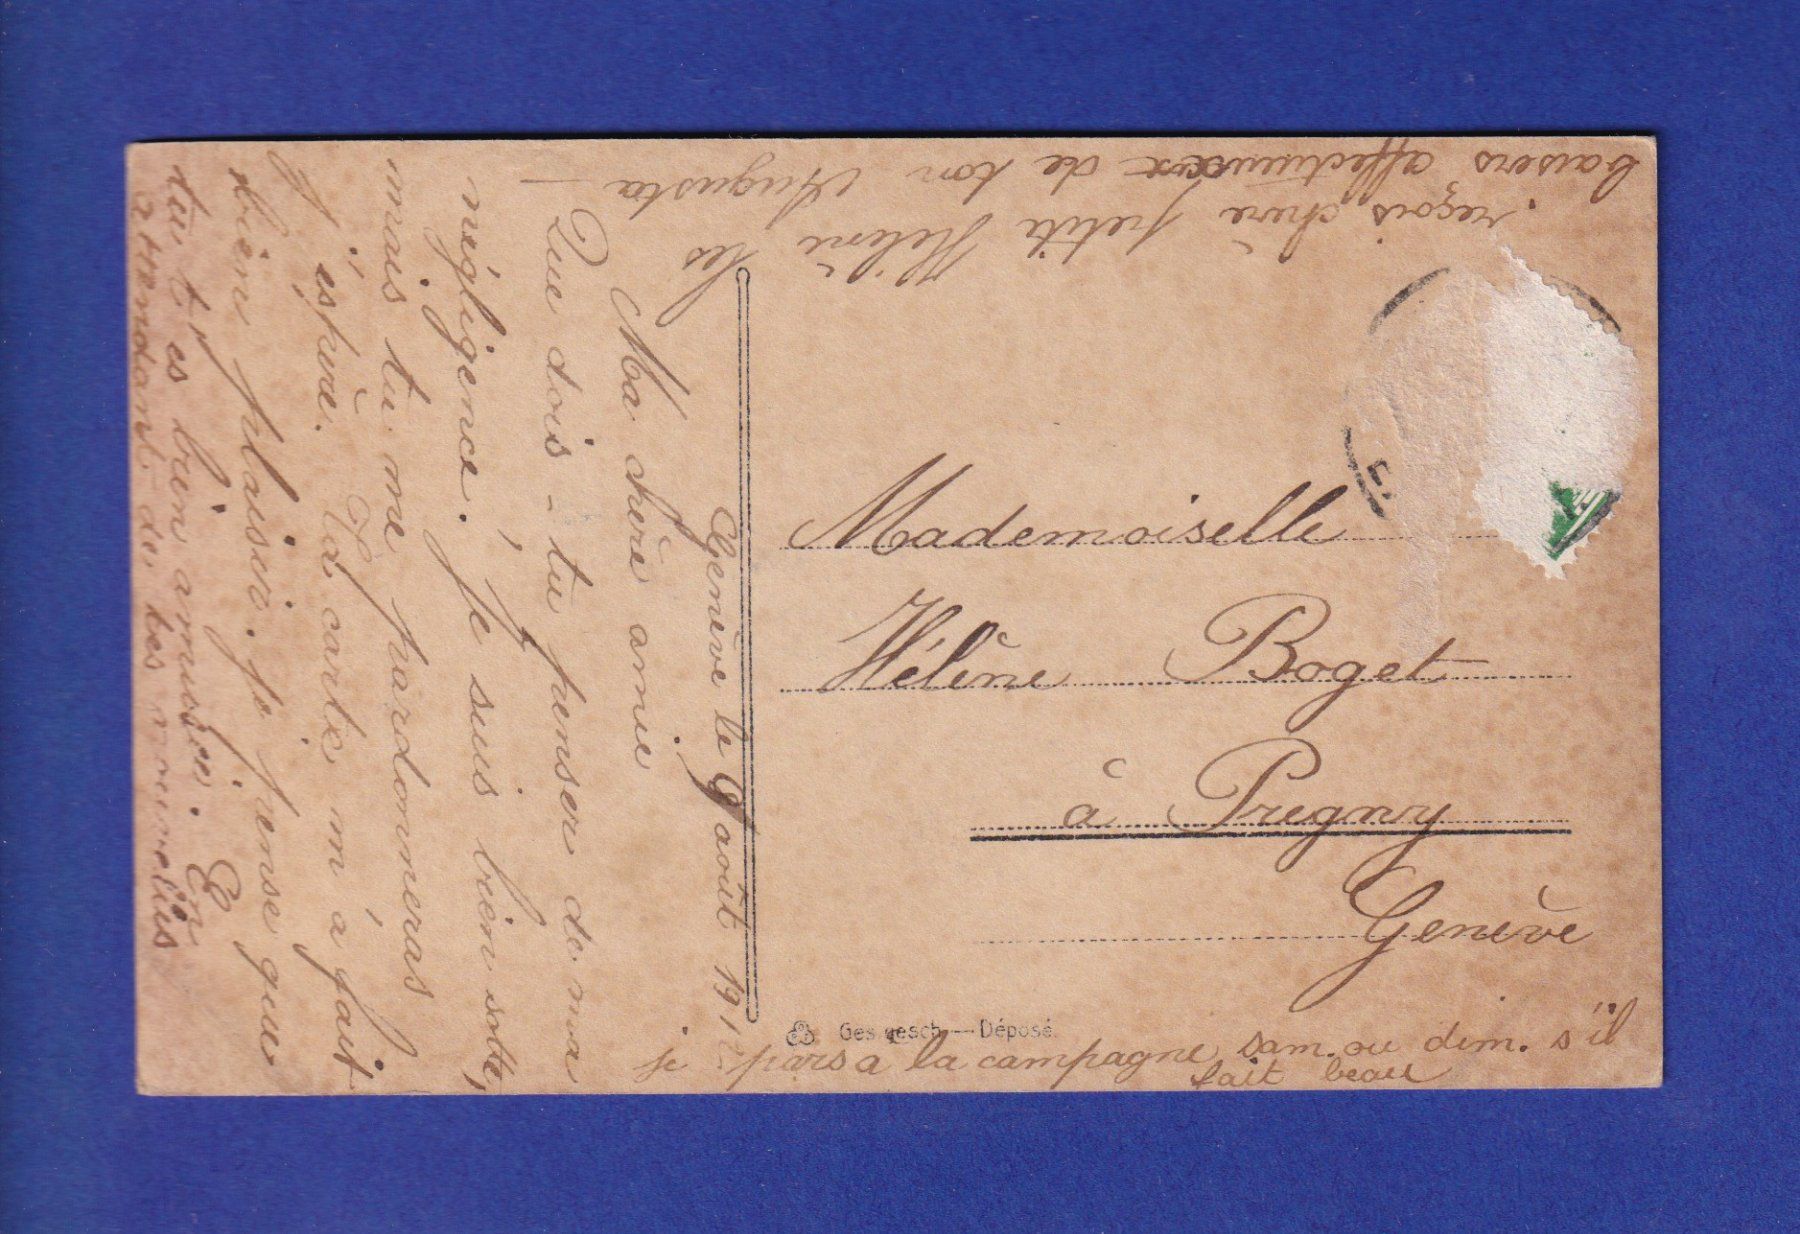 Genève le 9 août 1912
Ma chère amie
Que dois-tu penser de ma
négligence. Je suis bien sotte,
mais tu me pardonneras
j'éspère. Ta carte m'a fait
bien plaisir. je pense que
tu t'es bien amusée. En
attendant de tes nouvelles
reçois chère petite Hélène les
baisers affectueux de ton Augusta —
Mademoiselle
Hélène Boget
à Pregny
Genève
Ges gesch — Déposé
je pars a la campagne sam. ou dim. s'il
fait beau